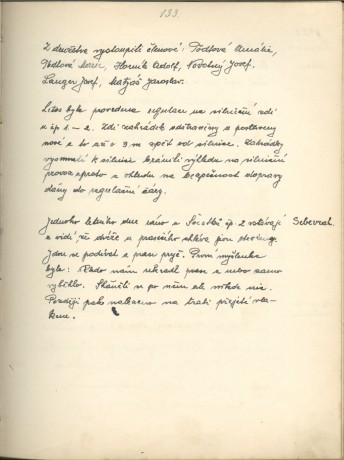 133.
Z družstva vystoupili členové: Tödtová Amálie,
Tödtová Marie, Horník Adolf, Novotný Josef,
Langer Josef, Matyáš Jaroslav.
Letos byla provedena regulace na silniční zdi
u čp 1 – 2. Zdi zahrádek odstraněny a postaveny
nové a to až o 3 m zpět od silnice. Zahrádky
vysunuté k silnici bránili výhledu na silniční
provoz a proto s ohledu na bezpečnost dopravy
dány do regulační čáry.
Jednoho letního dne ráno u čp. 2 vstávají
Sebevrah.
a vidí že dvéře u prasečího chléva jsou otevřeny.
Jdou se podívat a prase pryč. První myšlenka
byla: Někdo nám ukradl prase a nebo samo
vyběhlo. Sháněli se po něm ale nikde nic.
Později pak nalezeno na trati přejeté vla-
kem.